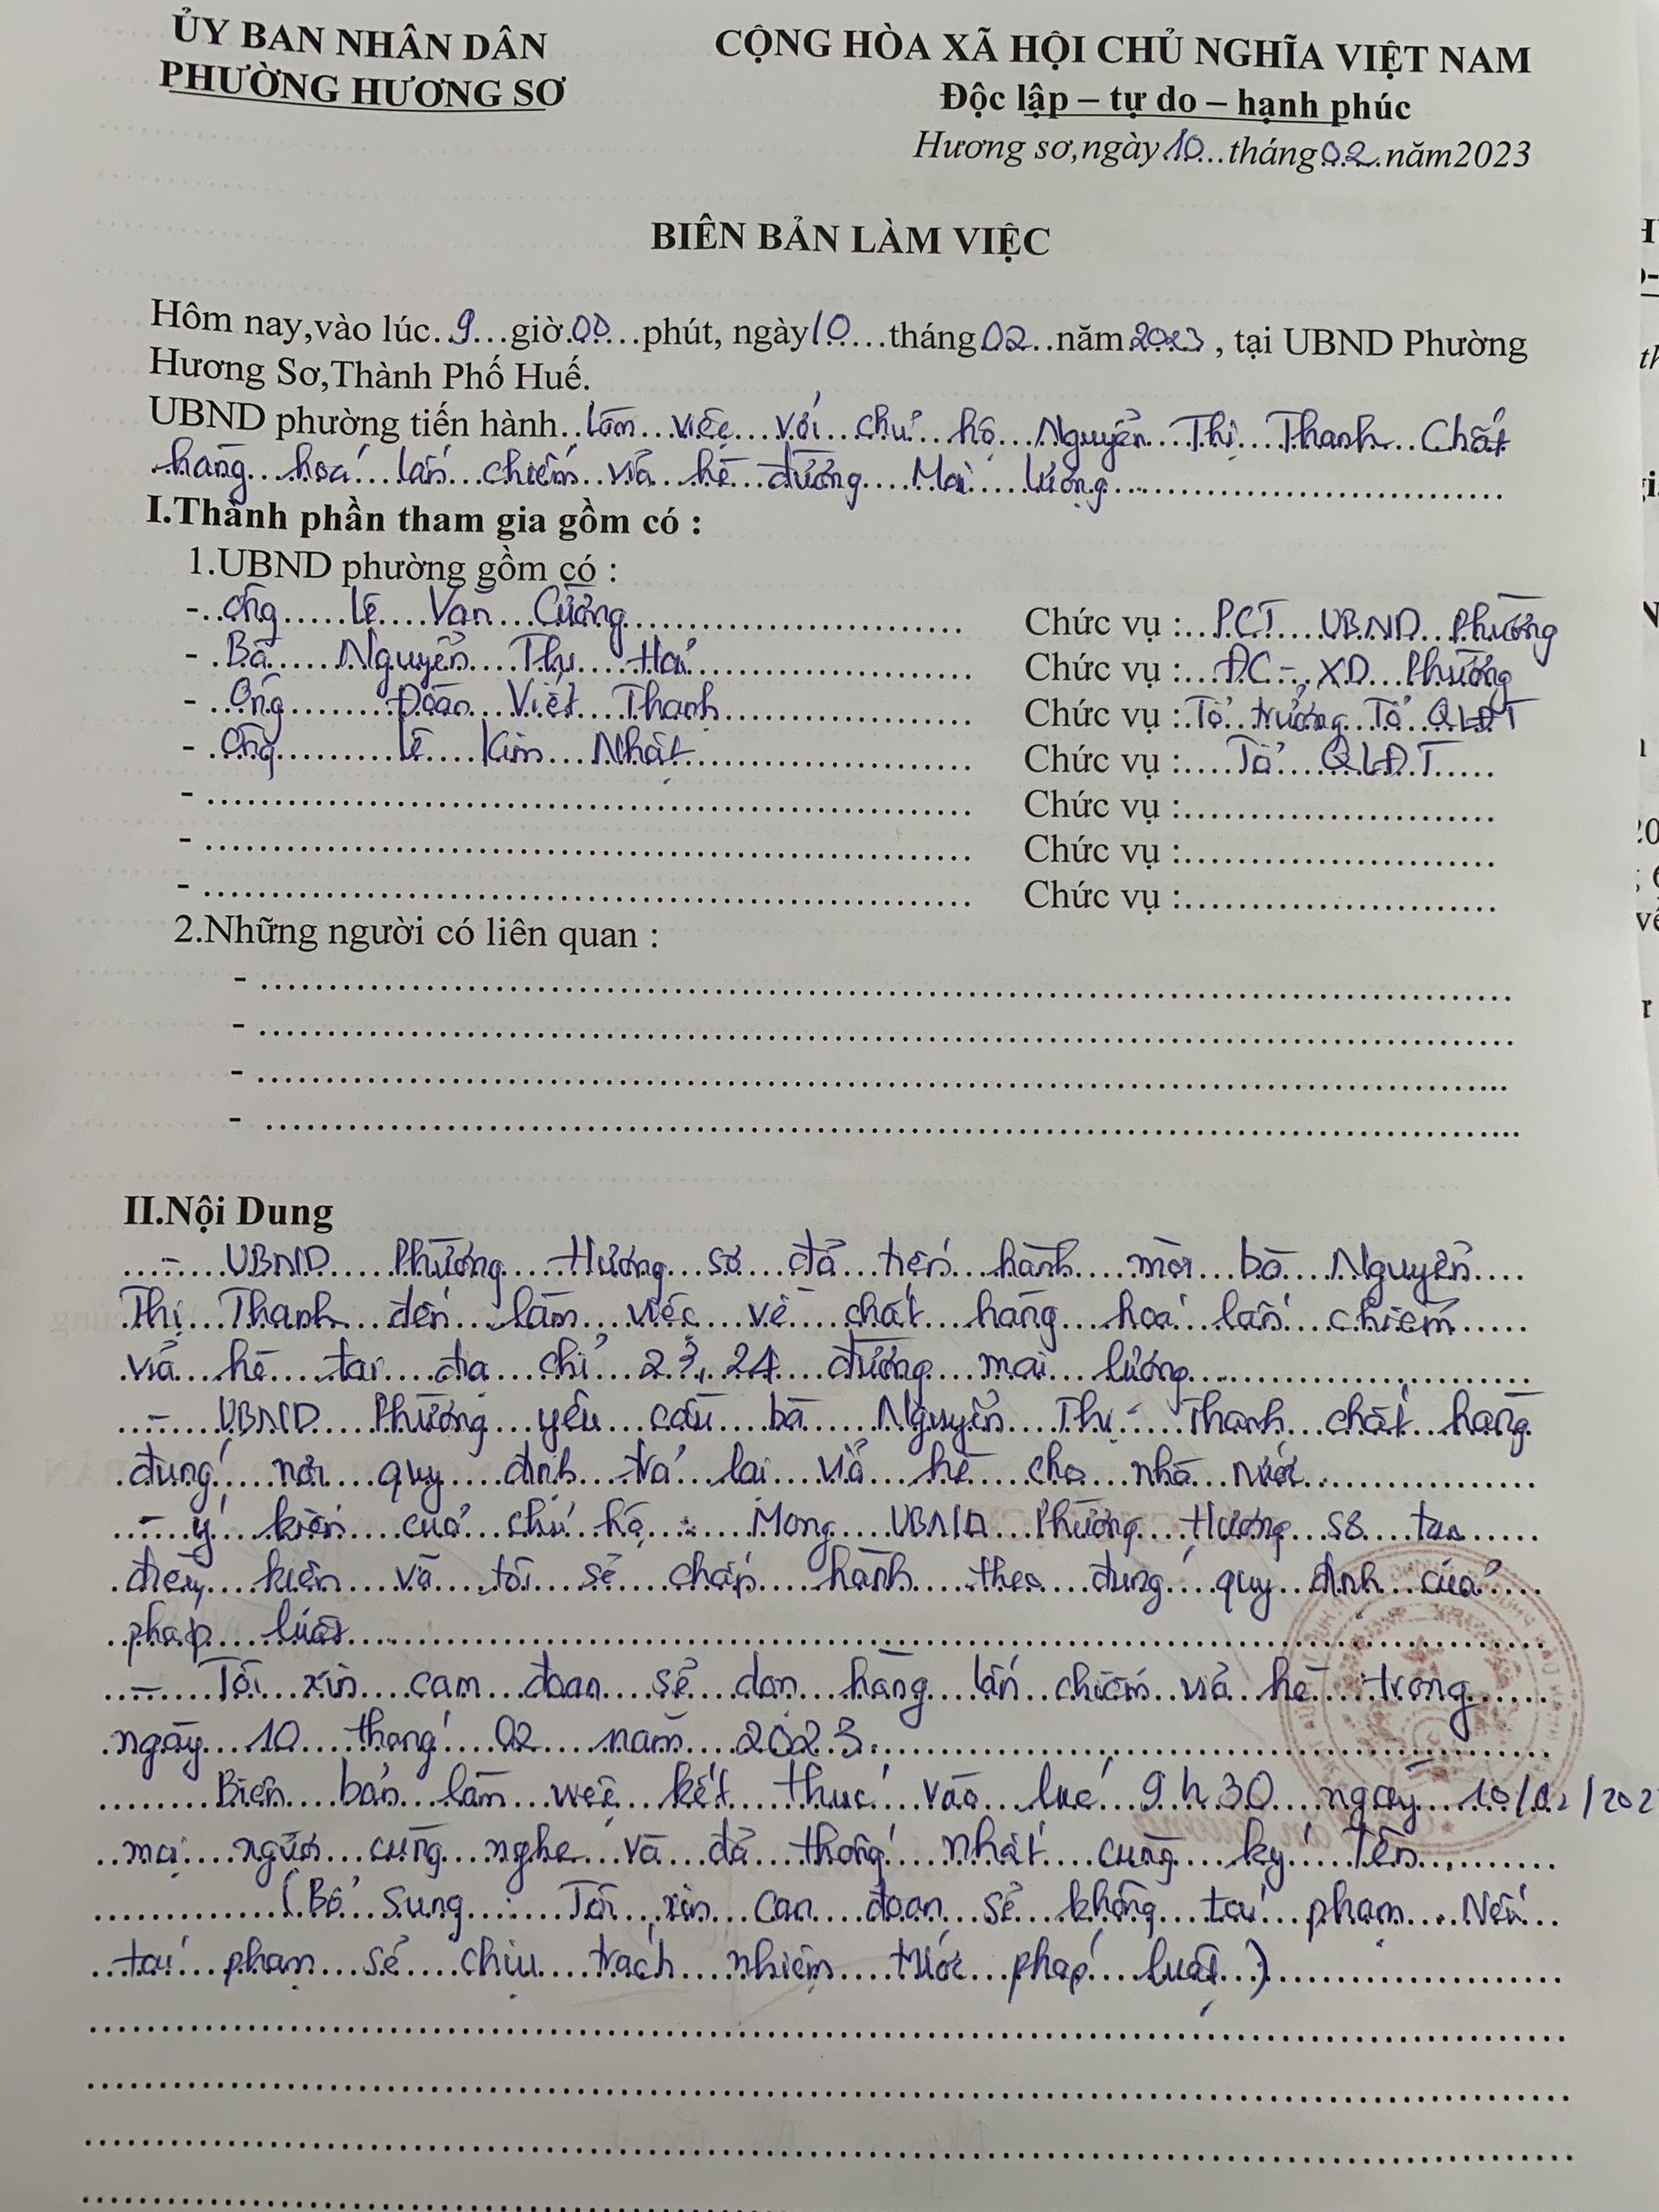 ỦY BAN NHÂN DÂN
PHƯỜNG HƯƠNG SƠ
CỘNG HÒA XÃ HỘI CHỦ NGHĨA VIỆT NAM
Độc lập – tự do – hạnh phúc
Hương sơ,ngày 10...tháng 02.năm2023
BIÊN BẢN LÀM VIỆC
Hôm nay,vào lúc..9...giờ.00....phút, ngày 10...tháng 02..năm 2023 , tại UBND Phường
Hương Sơ,Thành Phố Huế.
UBND phường tiến hành..làm...việc...với...chủ...hộ...Nguyễn...Thị...Thanh...Chất
hàng...hoá...lấn...chiếm...vỉa...hè...đường....Mai....Lượng...
I.Thành phần tham gia gồm có :
1.UBND phường gồm có :
-..Ông.....Lê....Văn...Cường........ Chức vụ :...P.CT....UBND...Phường
- .Bà.....Nguyễn....Thị....Hải........ Chức vụ :...ĐC-XD...Phường
- ..Ông........Đoàn...Viết....Thanh........ Chức vụ :.Tổ..trưởng..Tổ..QLĐT
- .Ông.........Lê....Kim...Nhật........ Chức vụ :....Tổ....QLĐT.....
- ........ Chức vụ :........
- ........ Chức vụ :........
- ........ Chức vụ :........
2.Những người có liên quan :
- ........
- ........
- ........
- ........
II.Nội Dung
...-....UBND.....Phường....Hương...sơ...đã...tiến...hành....mời...bà...Nguyễn....
Thị...Thanh...đến...làm...việc...về...chất...hàng...hoá...lấn...chiếm.....
vỉa...hè...tại...địa...chỉ...23,24....đường...mai...lượng........
...-...UBND....Phường...yêu...cầu...bà....Nguyễn...Thị...Thanh...chất...hàng
đúng...nơi...quy...định...trả...lại...vỉa...hè...cho...nhà...nước........
...-...ý...kiến...của...chủ...hộ...:...Mong...UBND...Phường...Hương...sơ...tạo......
điều...kiện...và...tôi...sẽ...chấp...hành...theo...đúng...quy...định...của....
pháp...luật........
...-...Tôi...xin...cam...đoan...sẽ...dọn...hàng...lấn...chiếm...vỉa...hè...trong......
ngày...10...tháng...02...năm...2023........
........Biên...bản...làm...việc...kết...thúc...vào...lúc...9h30...ngày...10/02/202
mọi...người...cùng...nghe...và...đã...thống...nhất...cùng...ký...Tên........
........(Bổ...Sung...:...Tôi...xin...Can...đoan...sẽ...không...tái...phạm....Nếu...
tái...phạm...sẽ...chịu...trách...nhiệm...trước...pháp...luật...)........